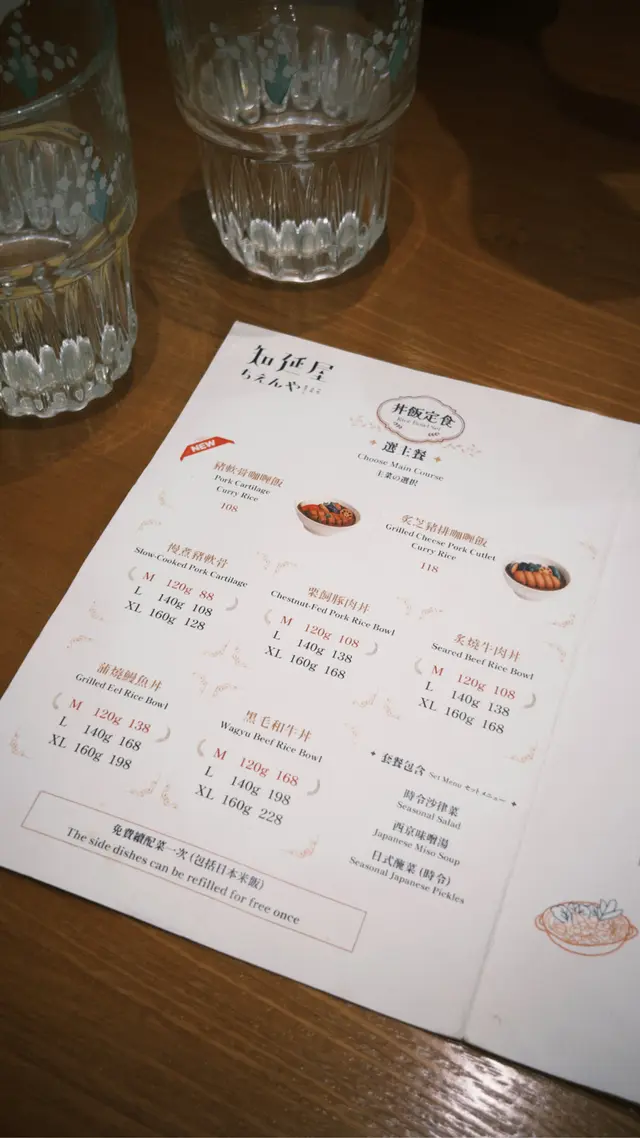 知延屋
ちえんや
丼飯定食
Rice Bowl Set
選主餐
Choose Main Course
主菜の選択
NEW
豬軟骨咖喱飯
Pork Cartilage
Curry Rice
108
炙芝豬排咖喱飯
Grilled Cheese Pork Cutlet
Curry Rice
118
慢煮豬軟骨
Slow-Cooked Pork Cartilage
M 120g 88
L 140g 108
XL 160g 128
栗飼豚肉丼
Chestnut-Fed Pork Rice Bowl
M 120g 108
L 140g 138
XL 160g 168
炙燒牛肉丼
Seared Beef Rice Bowl
M 120g 108
L 140g 138
XL 160g 168
蒲燒鰻魚丼
Grilled Eel Rice Bowl
M 120g 138
L 140g 168
XL 160g 198
黑毛和牛丼
Wagyu Beef Rice Bowl
M 120g 168
L 140g 198
XL 160g 228
套餐包含 Set Menu セットメニュー
時令沙律菜
Seasonal Salad
西京味噌湯
Japanese Miso Soup
日式醃菜 (時令)
Seasonal Japanese Pickles
免費續配菜一次 (包括日本米飯)
The side dishes can be refilled for free once